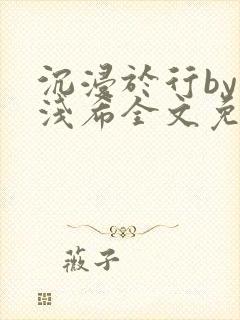 沉浸於行by
淺希全文免
薇子